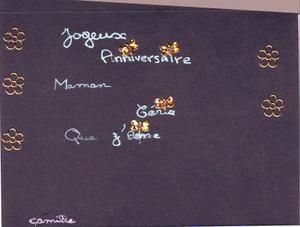 Joyeux
Anniversaire
Maman
Céria
Que j'Aime
camille